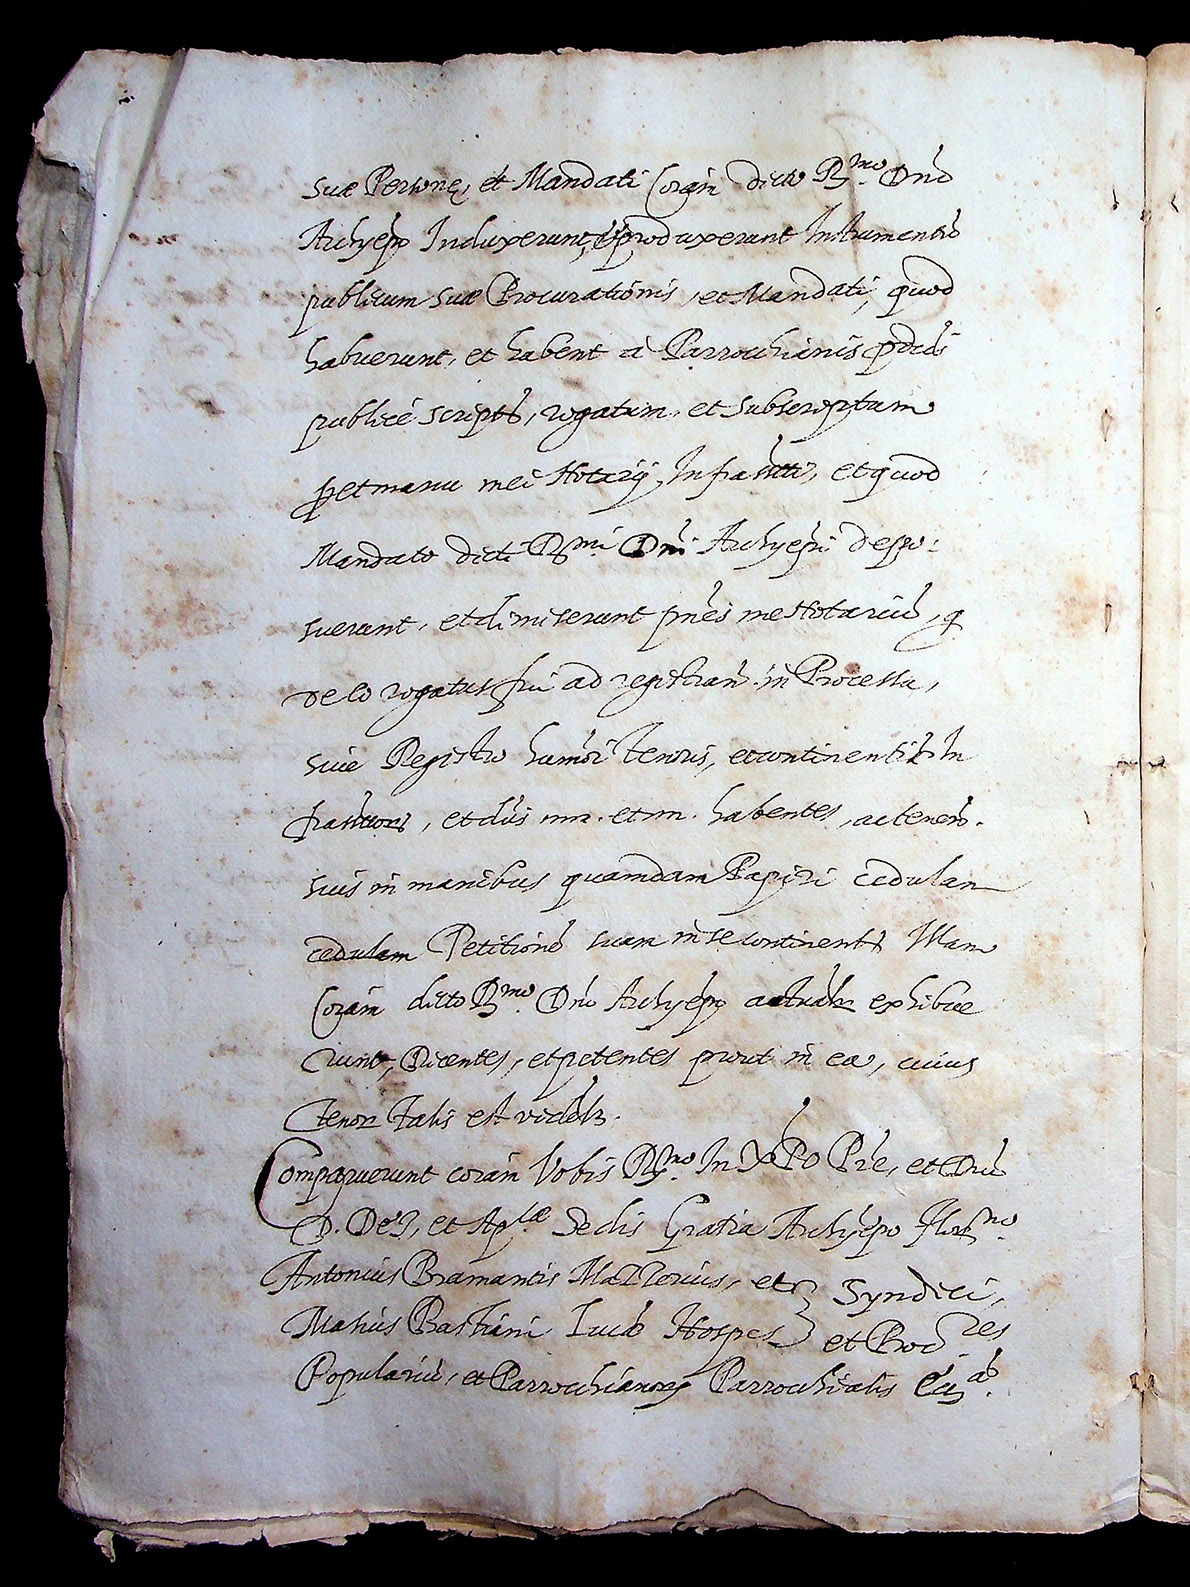 suæ Personę, et Mandati Coram dicto R.mo Dno
Archyepo Induxerunt, et produxerunt Instrumentũ
publicum suæ Procurationis, et Mandati, quod
habuerunt, et habent à Parrochianis pdictis
publicè scriptũ, rogatum, et subscriptum
p et manu mei Notarij Infrascritti, et quod
Mandato dicti R.mi Dni Archyepi deppo:
suerunt, et dimiserunt pnes me Notariũ, q
de eo rogatus fui ad registran. in Processu,
siue Registro humõi Tenoris, et continentiæ In
frascritti, et dĩs nn. et nn. habentes, ac tenen.
suis in manibus quamdam Papiri cedulam
cedulam Petitionẽ suam in se continentẽ Illam
Coram dicto R.mo Dno Archyepo actualr exhibue
runt, Dicentes, et petentes prout in ea, cuius
Tenor Talis est videlt.
Comparuerunt coram Vobis R.mo In XPO Pre, et Dno
D. Dei, et Ap.licæ Sedis Gratia Archyepo Flor.no
Antonius Bramantis Mazzonius, et } Syndici,
Matius Bastiani Lucæ Hospes } et Proc.res
Populariũ, et Parrochianorũ Parrochialis Ecc.æ